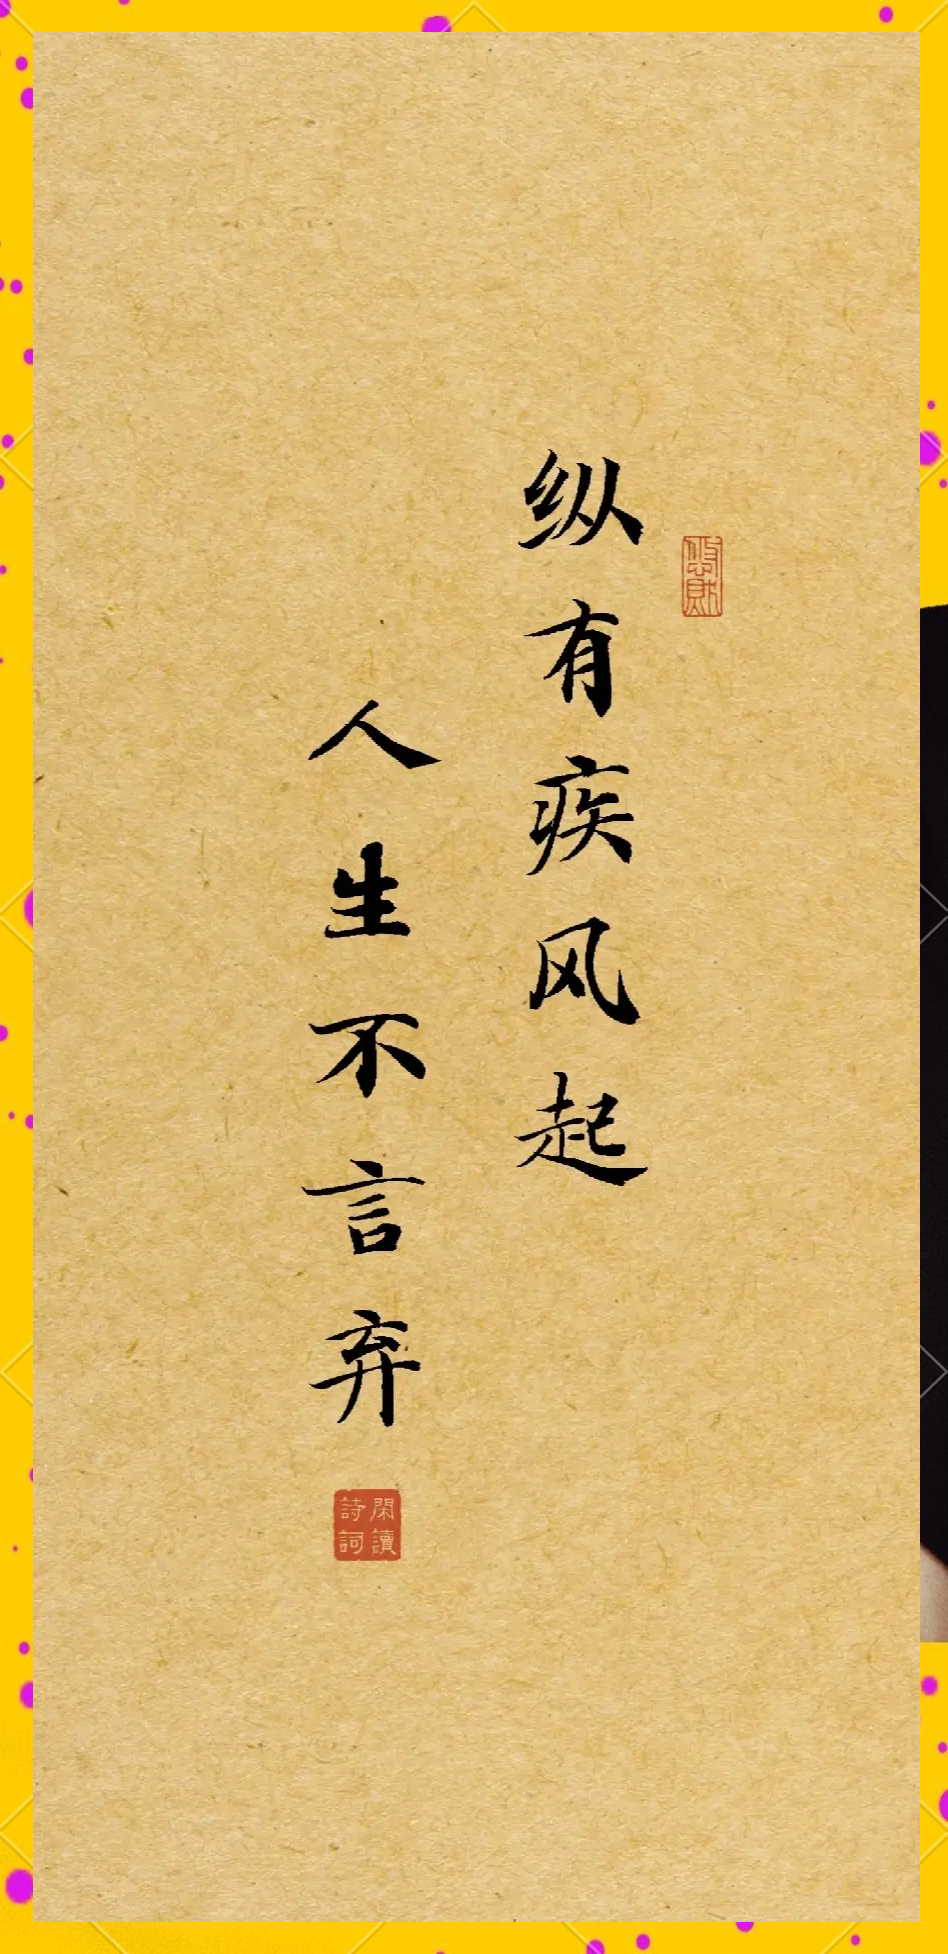 纵有疾风起
人生不言弃
閑讀
詩詞